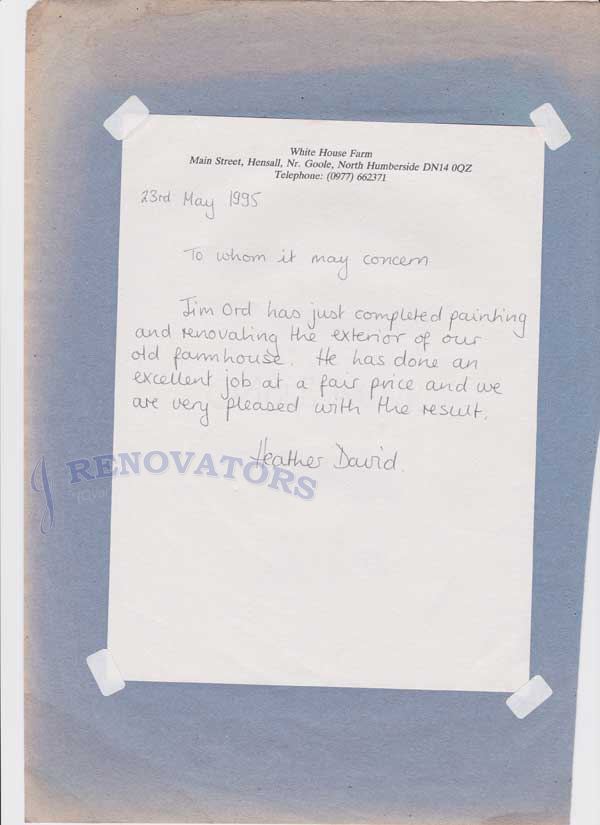 White House Farm
Main Street, Hensall, Nr. Goole, North Humberside DN14 0QZ
Telephone: (0977) 662371
23rd May 1995
To whom it may concern
Jim Ord has just completed painting
and renovating the exterior of our
old farmhouse. He has done an
excellent job at a fair price and we
are very pleased with the result.
Heather David.
J RENOVATORS